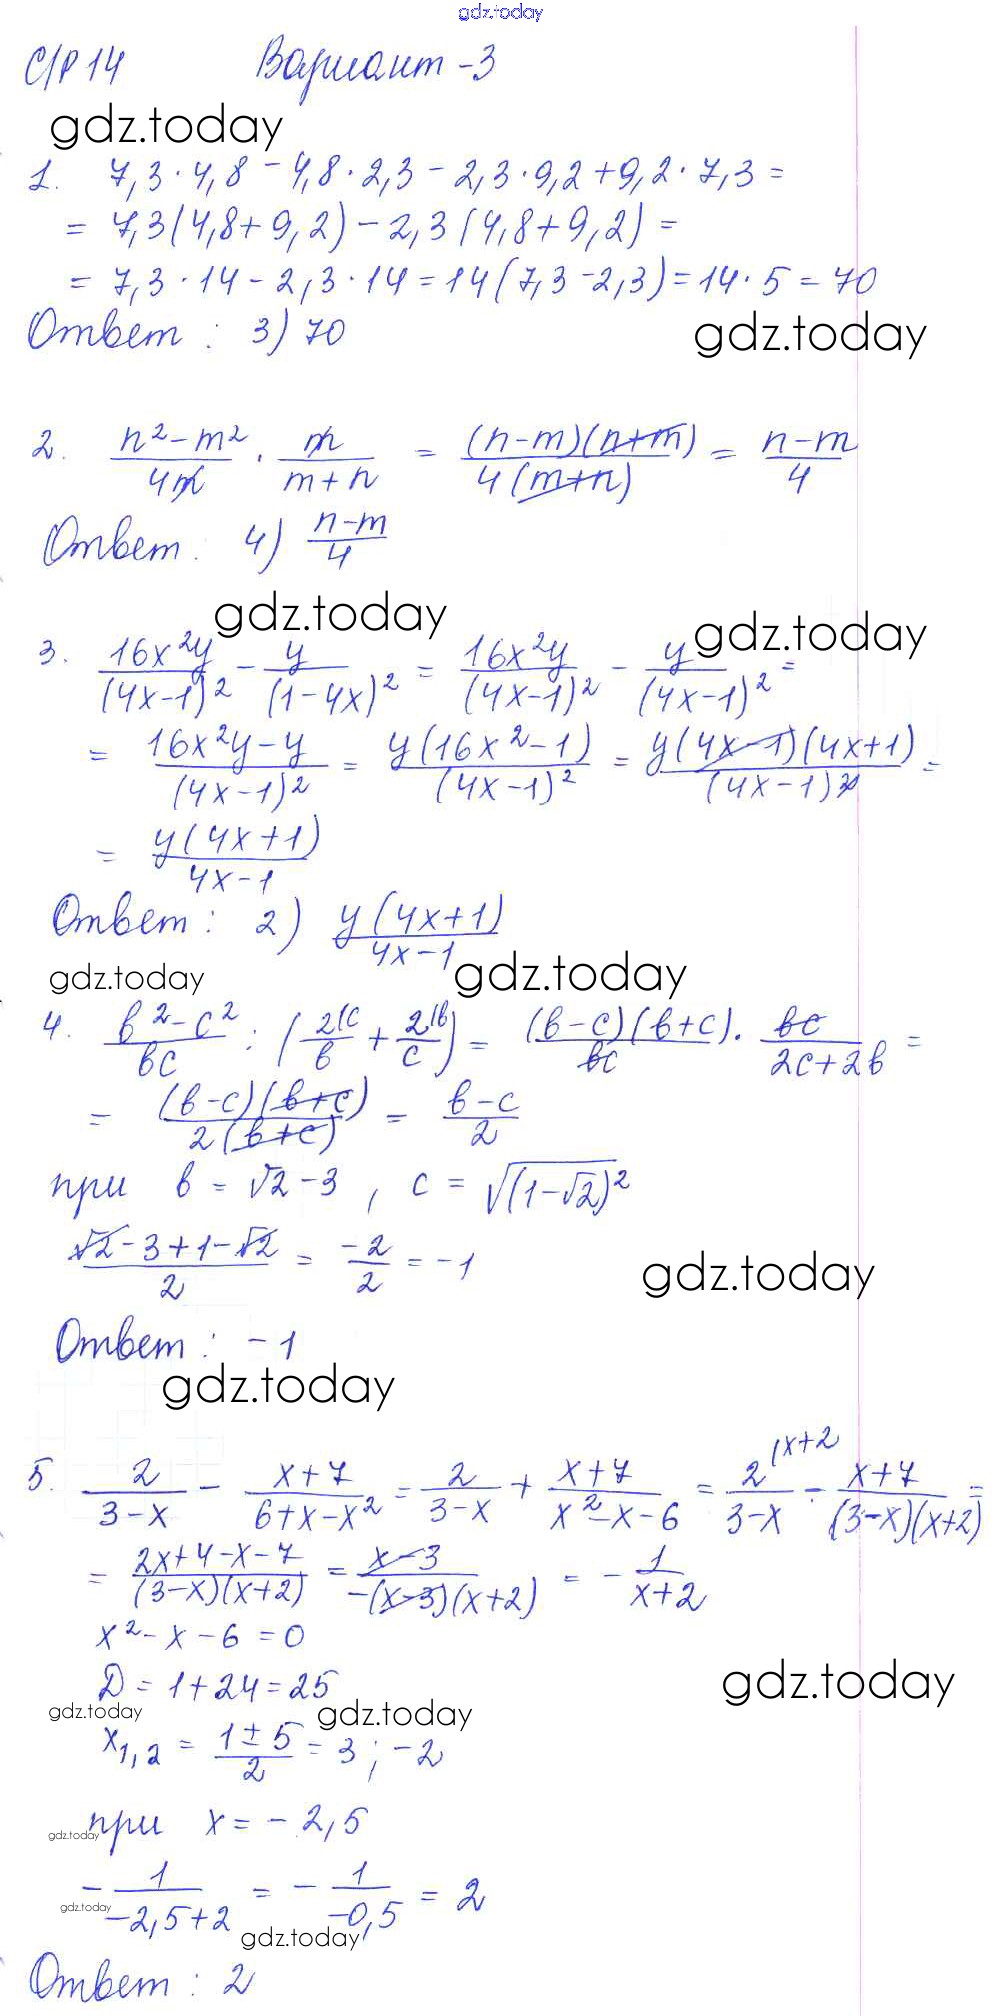 gdz.today
С/Р 14 Вариант-3
gdz.today
1. 7,3·4,8-4,8·2,3-2,3·9,2+9,2·7,3=
=7,3(4,8+9,2)-2,3(4,8+9,2)=
=7,3·14-2,3·14=14(7,3-2,3)=14·5=70
Ответ: 3) 70
gdz.today
2. (n²-m²)/(4n) · n/(m+n) = ((n-m)(n+m))/(4(m+n)) = (n-m)/4
Ответ: 4) (n-m)/4
gdz.today gdz.today
3. (16x²y)/((4x-1)²) - y/((1-4x)²) = (16x²y)/((4x-1)²) - y/((4x-1)²) =
= (16x²y-y)/((4x-1)²) = (y(16x²-1))/((4x-1)²) = (y(4x-1)(4x+1))/((4x-1)²) =
= (y(4x+1))/(4x-1)
Ответ: 2) (y(4x+1))/(4x-1)
gdz.today gdz.today
4. (в²-с²)/(вс) : (2^(с/в + 2^(в/с) = ((в-с)(в+с))/(вс) · (вс)/(2с+2в) =
= ((в-с)(в+с))/(2(в+с)) = (в-с)/2
при в = √2-3, с = √((1-√2)²)
(√2-3+1-√2)/2 = (-2)/2 = -1
gdz.today
Ответ: -1
gdz.today
5. 2/(3-x) - (x+7)/(6+x-x²) = 2/(3-x) + (x+7)/(x²-x-6) = 2^(x+2/(3-x) - (x+7)/((3-x)(x+2)) =
= (2x+4-x-7)/((3-x)(x+2)) = (x-3)/(-(x-3)(x+2)) = -1/(x+2)
x²-x-6=0
D=1+24=25
gdz.today
gdz.today gdz.today
x₁,₂ = (1±5)/2 = 3; -2
при x=-2,5
gdz.today
-1/(-2,5+2) = -1/(-0,5) = 2
gdz.today
gdz.today
Ответ: 2